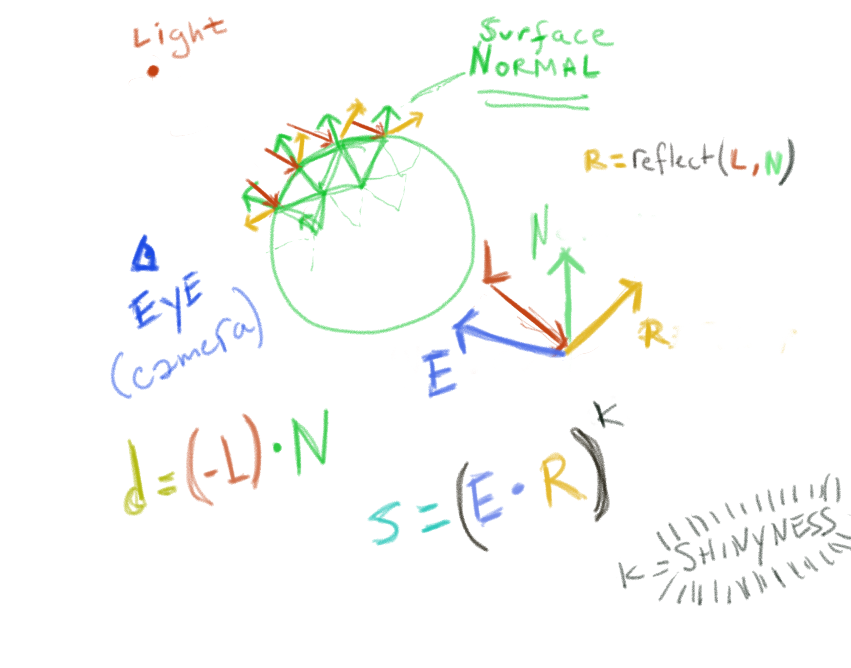 Light
Surface
NORMAL
R=reflect(L,N)
N
L
EYE
(camera)
R
E
d=(-L)•N
S=(E•R)^K
K=SHINYNESS